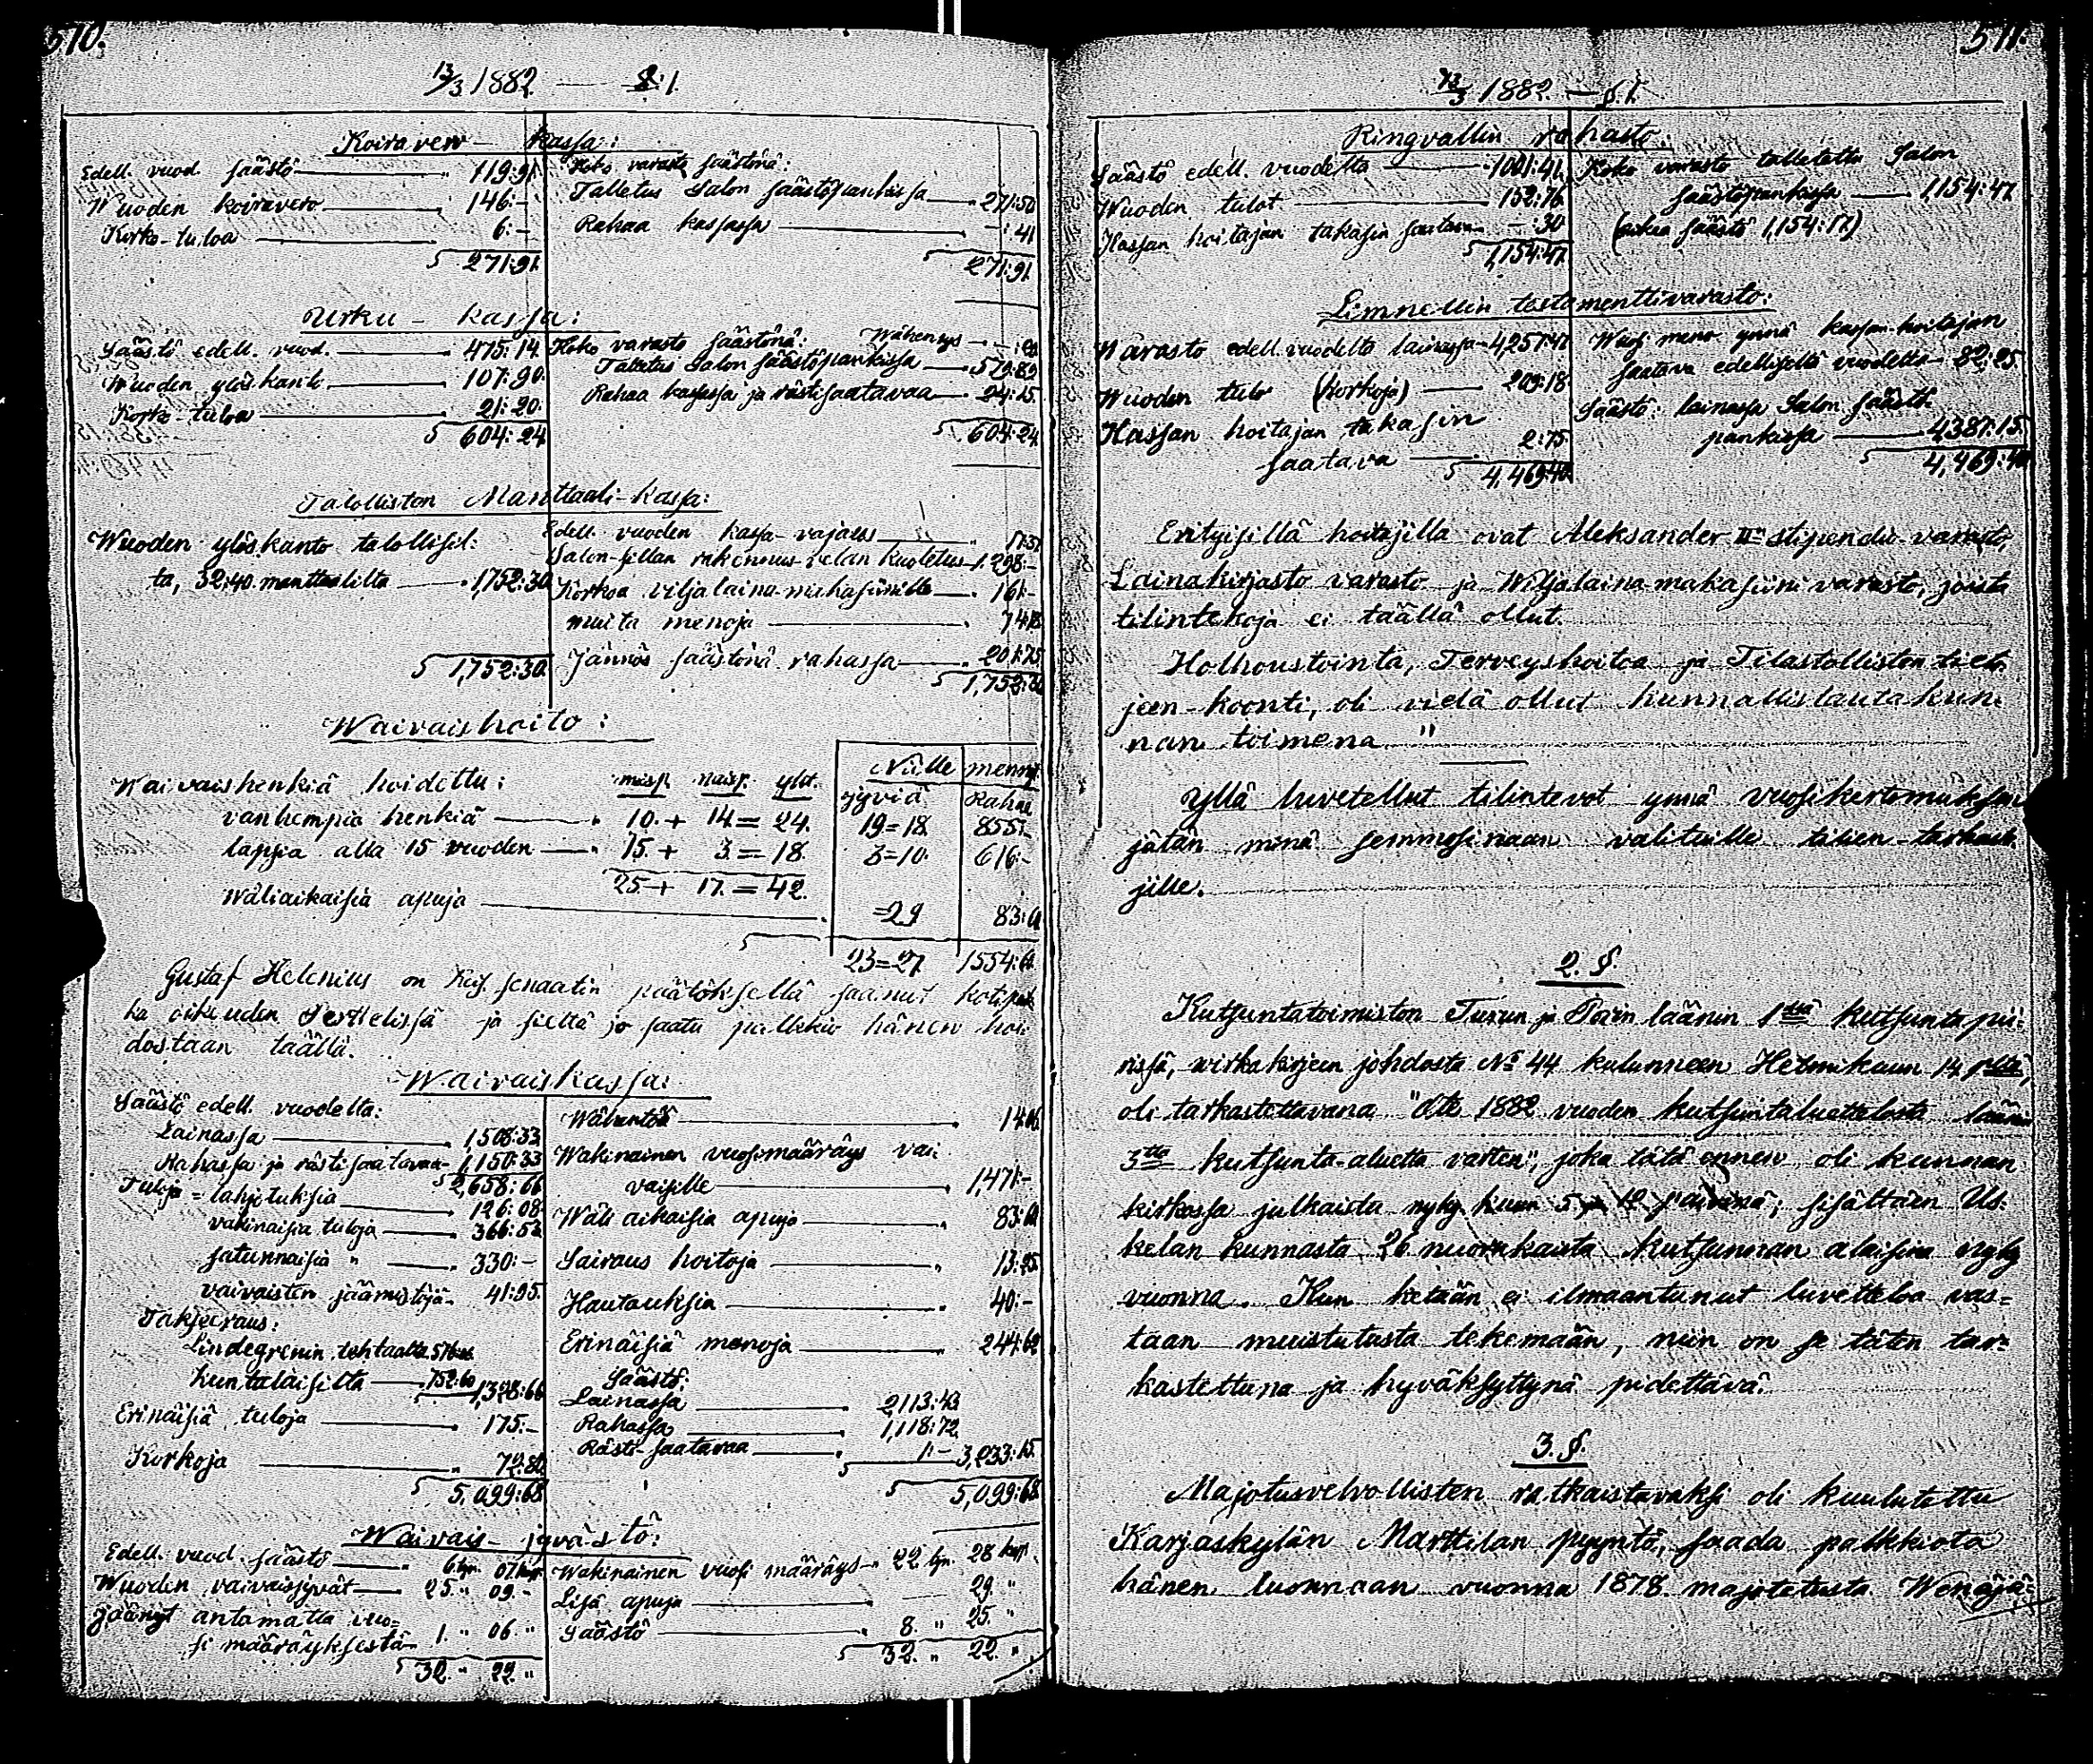 570.
13/3 1882 — §.1.
Koiravero — kassa:
Edell. vuod. säästö — " 119:91.
Wuoden koiravero — " 146:-
Korko-tuloa — " 6:-
S 271:91.
Koko varasto säästönä:
Talletus Salon säästöpankissa — " 271:50
Rahaa kassassa — " -:41
S 271:91.
Urku — kassa:
Säästö edell. vuod. — " 475:14
Wuoden yläskanto — " 107:90.
Korko-tuloa — " 21:20.
S 604:24
Koko varasto säästönä: Wähennys —
Talletus Salon säästöpankissa — " 579:89
Rahaa kassassa ja rästisaatavaa — " 24:15.
S 604:24
Talolliston Manttaali-kassa:
Wuoden ylöskanto talollisil:
ta, 32:40. manttaalilta — " 1,752:30
S 1,752:30.
Edell. vuoden kassa-vajaus — " 17:37
Salon-sillan rakennus velan kuoletus — 1,298:-
Korkoa viljalaina-makasiinille — " 161:-
muita menoja — " 74:18
Jäännös säästönä rahassa — " 201:75
S 1,752:30
Waivaishoito:
Waivaishenkiä hoidettu: miesp. naisp. yht.
vanhempia henkiä — " 10. + 14 = 24.
lapsia alla 15 vuoden — " 15. + 3. = 18.
25 + 17. = 42.
Wäliaikaisia apuja —
Niille mennyt
jyviä Rahaa
19=18. 855:-
3=10. 616:-
=29 83:61
S 23=27. 1554:61.
Gustaf Helenius on Keis. senaatin päätöksellä saanut kotipaik
ka oikeuden Perttelissä ja sieltä jo saatu palkkio hänen hoi
dostaan täällä.
Waivaiskassa:
Säästö edell. vuodelta:
Lainassa — " 1508:33
Rahassa ja rästisaatavaa — 1,150:33
S 2,658:66
Tuloja = lahjotuksia — " 126:08
vakinaisia tuloja — " 366:53
satunnaisia " — " 330:-
vaivaisten jäämistöjä — 41:95.
Takseeraus:
Lindegrenin tehtaalta
kuntalaisilta — 752:60
S 1,328:66
Erinäisiä tuloja — " 175:-
Korkoja — " 72:80
S 5,099:68
Wähentöä — " 14:06.
Wakinainen vuosimääräys vai:
vaisille — " 1,471:-
Wäli aikaisia apuja — " 83:61
Sairaus hoitoja — " 13:25.
Hautauksia — " 40:-
Erinäisiä menoja — " 244:62
Säästö:
Lainassa — " 2113:43
Rahassa — " 1,118:72.
Rästi-saatavaa — " 1:- 3,233:15.
S 5,099:68
Waivais — jyvästö:
Edell. vuod. säästö — " 6 tyn. 07 kap.
Wuoden vaivaisjyvät — " 25 " 09.-
jäänyt antamatta vuo-
si määräyksestä — 1. " 06 "
S 32. " 22. "
Wakinainen vuosi määräys — " 22 tyn. 28 kapp.
Lisä apuja — " 29. "
Säästö — " 8. " 25. "
S 32. " 22. "
571.
13/3 1882. — §.1.
Ringvallin rahasto:
Säästö edell. vuodelta — " 1001:41.
Wuoden tulot — " 152:76.
Kassan hoitajan takasin saatava — -:30
S 1,154:47.
Koko varasto talletettu Salon
säästöpankissa — 1,154:47.
(oikea säästö 1,154:17.)
Limnellin testamenttivarasto:
Warasto edell. vuodelta lainassa — 4,257:47
Wuoden tulo (korkoja) — 209:18.
Kassan hoitajan takasin
saatava — " 2:75.
S 4,469:40.
Wuosi meno ynnä kassan-hoitajan
saatava edelliseltä vuodelta — 82:25.
Säästö: lainassa Salon säästö-
pankissa — 4,387:15.
S 4,469:40
Erityisillä hoitajilla ovat Aleksander IIn stipendi-varasto,
Lainakirjasto varasto ja Wiljalaina-makasiini varasto, joista
tilintekoja ei täällä ollut.
Holhoustointa, Terveyshoitoa ja Tilastolliston tieto-
jeen-koonti, oli vielä ollut kunnallislautakun-
nan toimena "
Yllä luvetellut tilintevot ynnä vuosikertomuksen
jätän minä semmosinaan valituille tilien-tarkasta-
jille.
2. §.
Kutsuntatoimiston Turun ja Porin läänin 1ssä kutsuntapii-
rissä, virkakirjeen johdosta No 44 kulunneen Helmikuun 14 p:ltä,
oli tarkastettavana "Ote 1882 vuoden kutsuntaluettelosta läänin
3tta kutsunta-aluetta varten", joka tätä ennen oli kunnan
kirkossa julkaistu nyky kuun 5 ja 12 päivänä; sisältäen Us-
kelan kunnasta 26 nuorukaista kutsunnan alaisina nyky
vuonna. Kun ketään ei ilmaantunut luvetteloa vas=
taan muistutusta tekemään, niin on se täten tar-
kastettuna ja hyväksyttynä pidettävä.
3. §.
Majotusvelvollisten ratkaistavaksi oli kuulutettu
Karjaskylän Marttilan pyyntö, saada palkkiota
hänen luonnaan vuonna 1878 majotetusta Wenäjä=